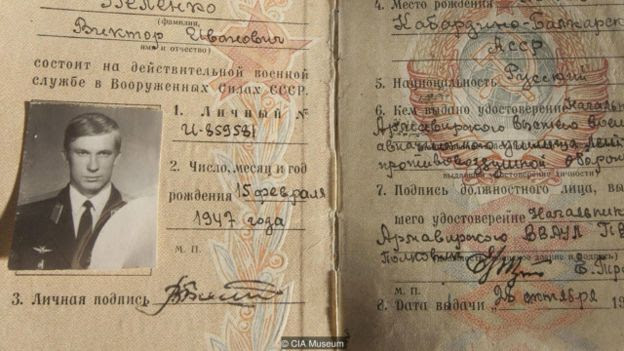 Беленко
(фамилия,
Виктор Иванович
имя и отчество)
состоит на действительной военной
службе в Вооруженных Силах СССР.
1. Личный №
И-859581
2. Число, месяц и год
рождения 15 февраля
1947 года
М. П.
3. Личная подпись
4. Место рождения
Кабардино-Балкарск
АССР
5. Национальность Русский
6. Кем выдано удостоверение Начальн
Армавирского высшего воен
авиационного училища
противовоздушной оборон
7. Подпись должностного лица, вы
шего удостоверение Начальник
Армавирского ВВАУЛ ПВ
полковник
М. П.
8. Дата выдачи 26 октября 19
© CIA Museum